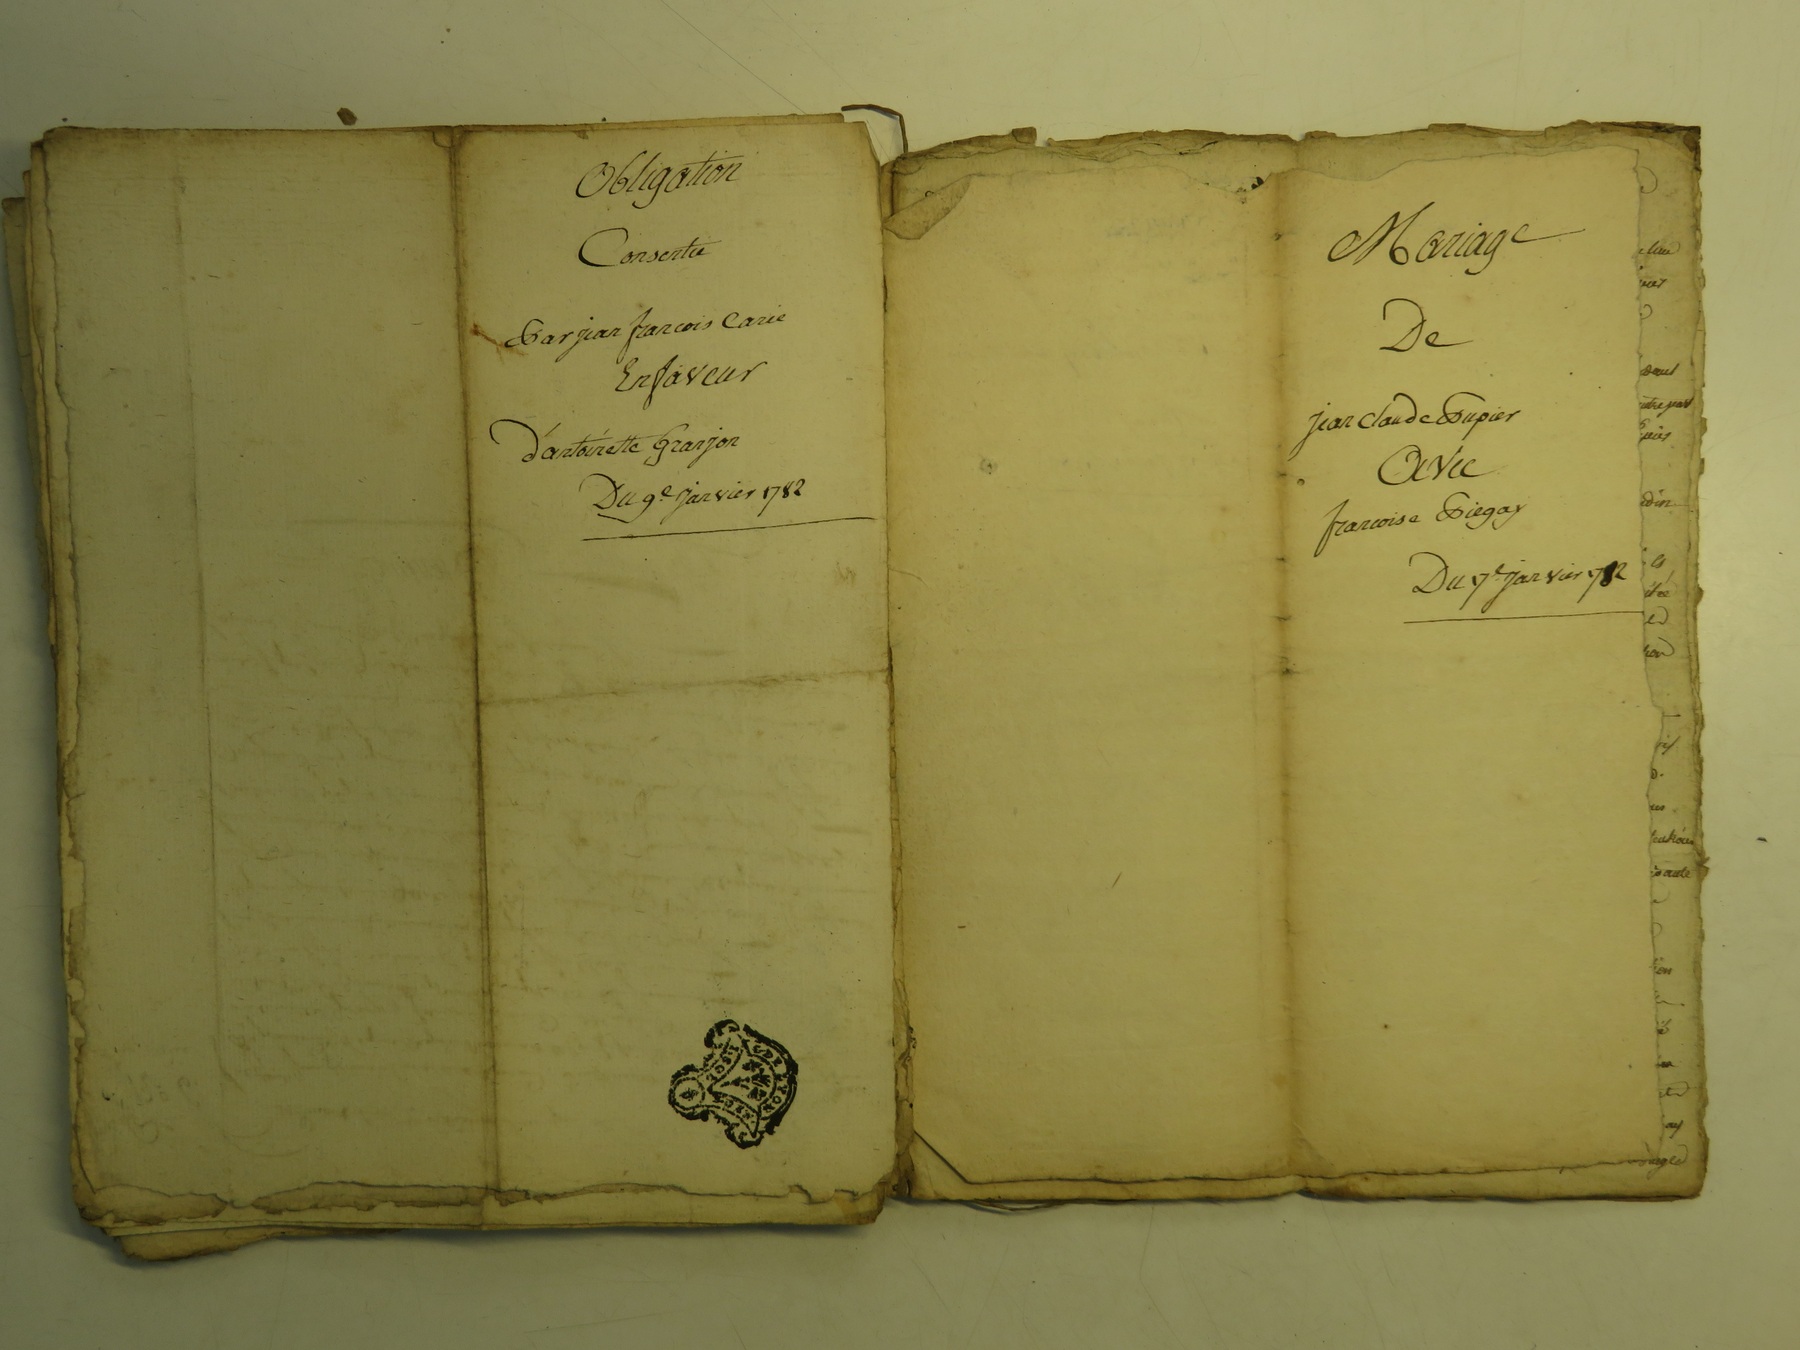 Obligation
Consentie
Par jean francois Carie
En faveur
D'antoinette Granjon
Du 9e janvier 1782
Mariage
De
jean Claude Dupier
Avec
francoise Piegay
Du 7e janvier 1782